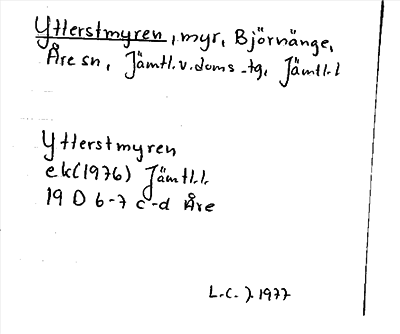 Ytterstmyren, myr, Björnänge,
Åre sn, Jämtl.v.doms.tg, Jämtl.l
Ytterstmyren
ek(1976) Jämtl.l.
19 D 6-7 c-d Åre
L.C. J. 1977